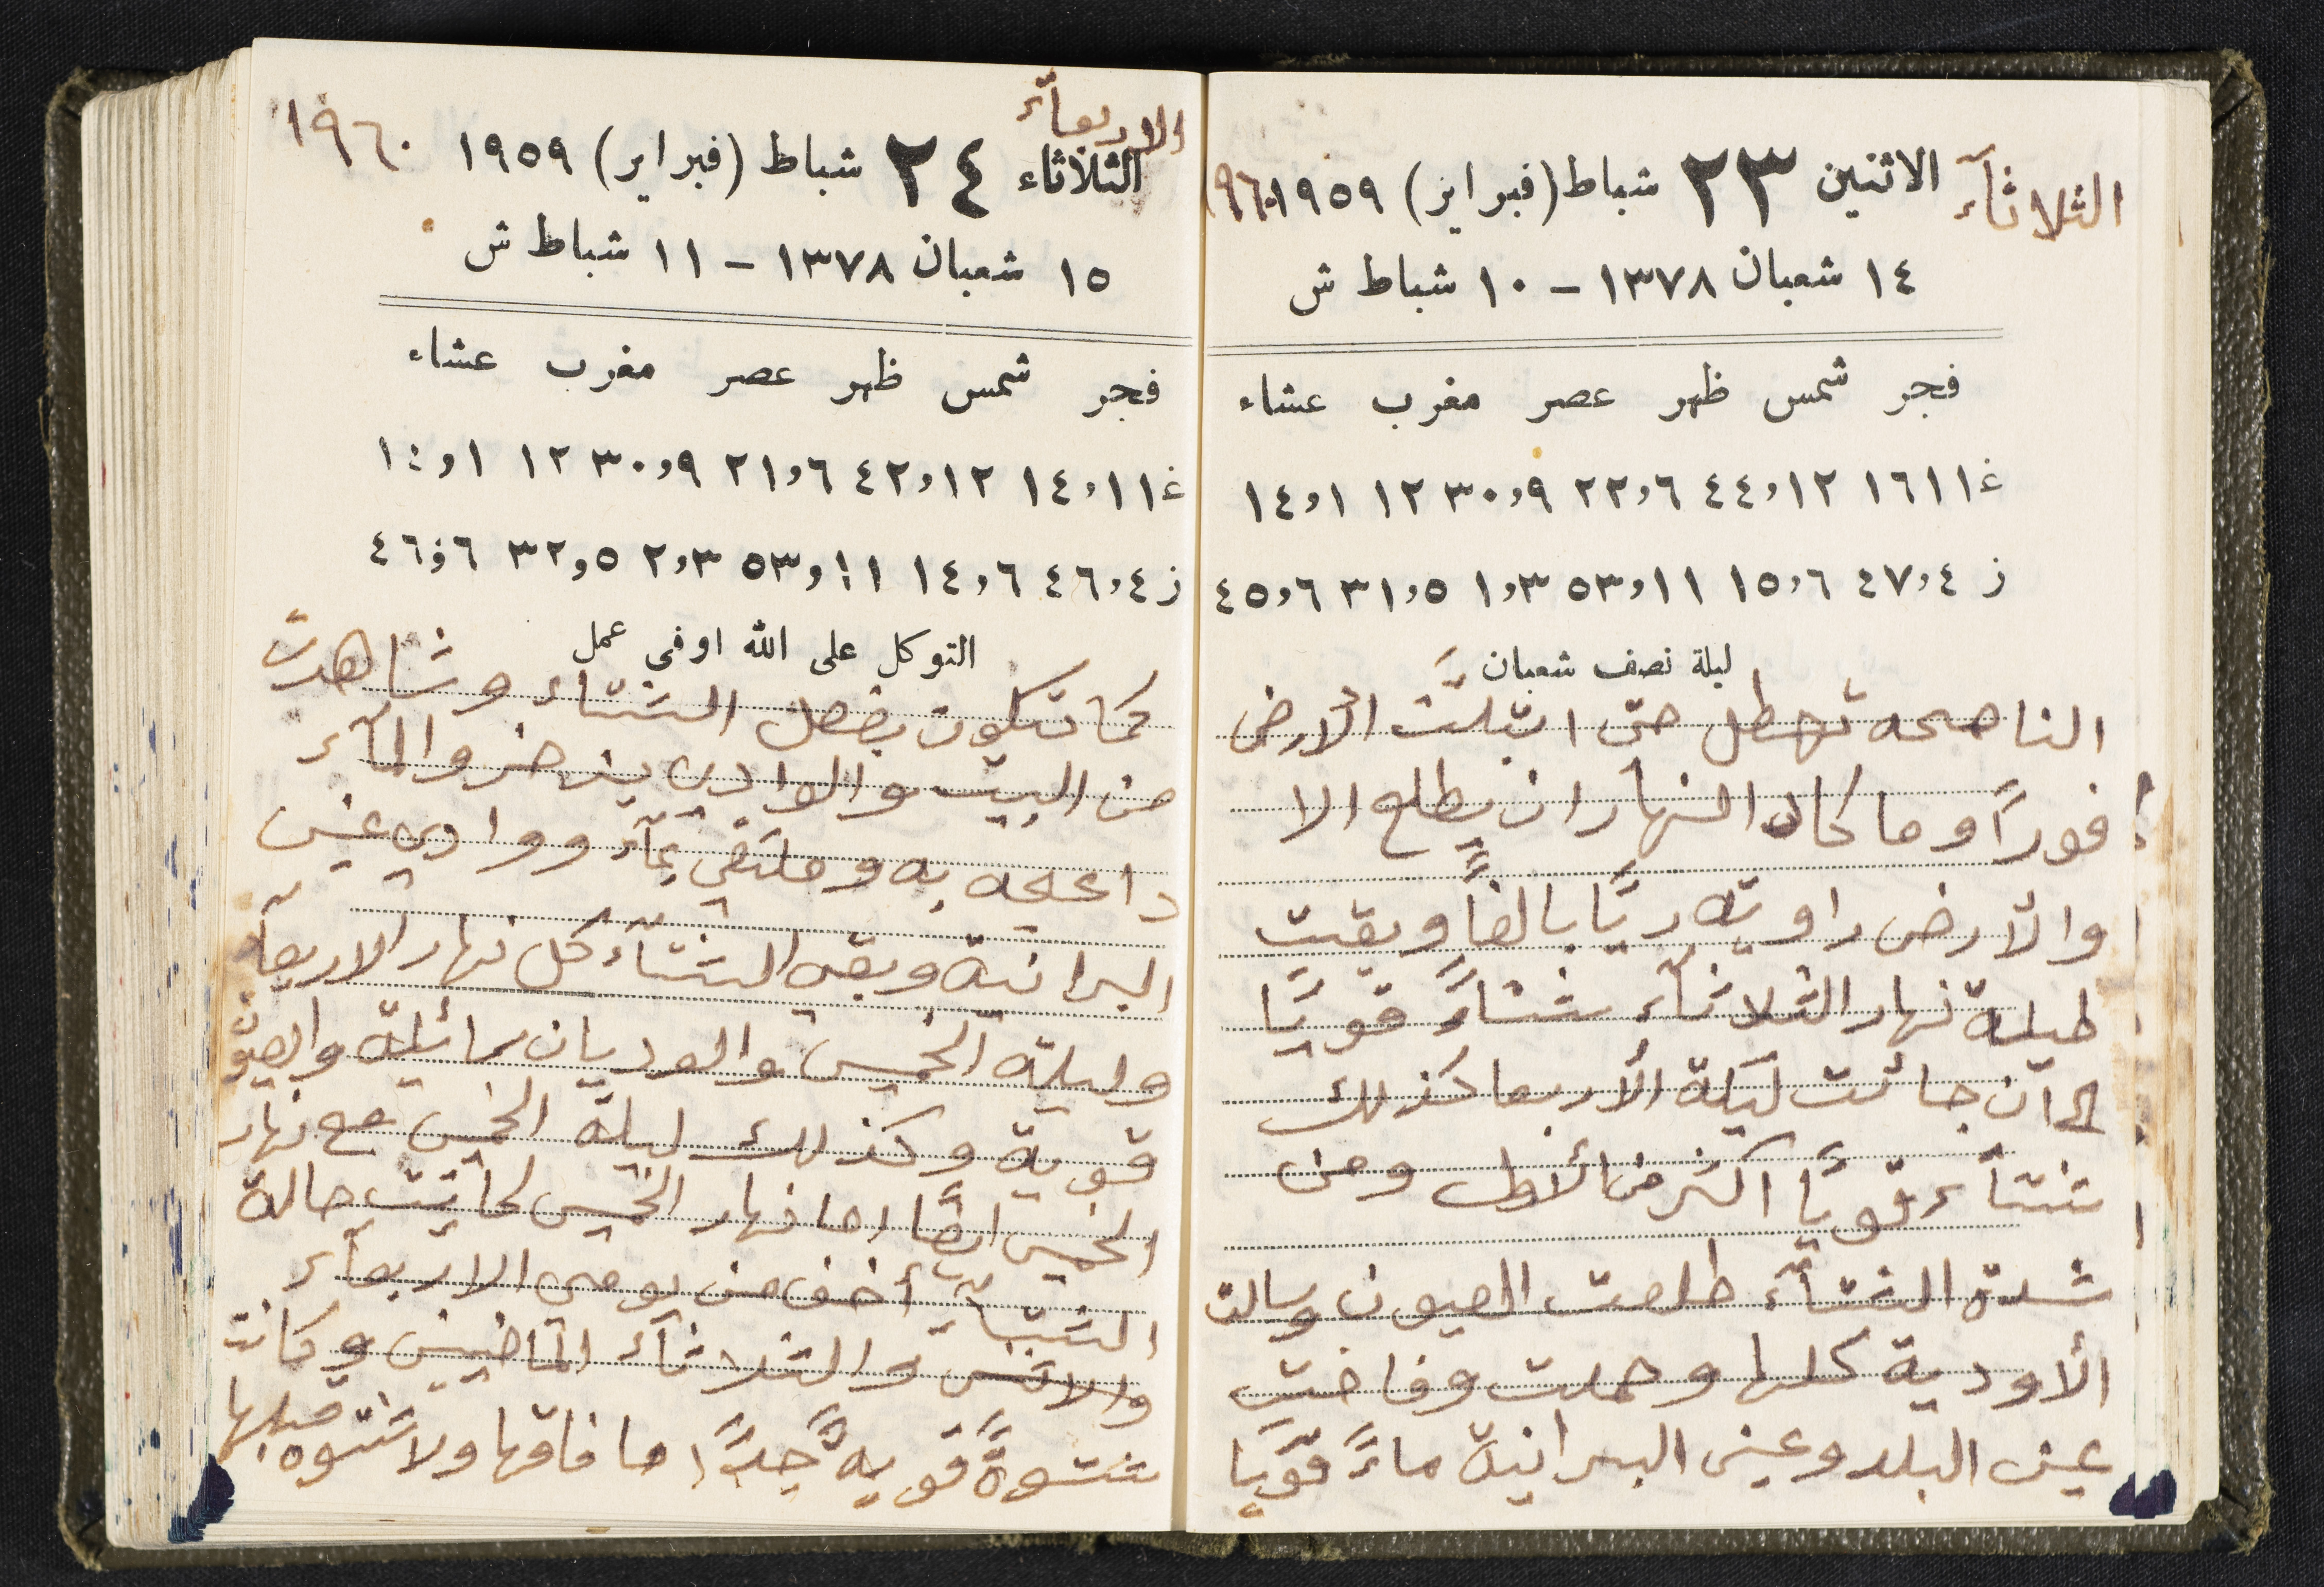 الثلاثآء الاثنين ٢٣ شباط (فبراير) ١٩٥٩ ١٩٦٠
١٤ شعبان ١٣٧٨ – ١٠ شباط ش
فجر شمس ظهر عصر مغرب عشاء
غ ١٦١١ ٤٤,١٢ ٢٢,٦ ٣٠,٩ ١٢ ١٤,١
ز ٤٧,٤ ١٥,٦ ٥٣,١١ ١,٣ ٣١,٥ ٤٥,٦
ليلة نصف شعبان
الناصحه تهطل حتى ابتلّت الأرض
فوراً وما كاد النهار ان يطلع الا
والأرض راويّه ريّاً بالغاً وبقيت
طيلة نهار الثلاثآء شتاءً قويّاً
الى ان جائت ليلة الأربعا كذلك
شتآء قويّاً اكثر من الأول ومن
شدة الشتآء طلعت العيون وسالت
الأودية كلها وحملت وفاضت
عين البلد وعين البرانية ماءً قويّا
الاربعآء
الثلاثاء ٢٤ شباط (فبراير) ١٩٥٩ ١٩٦٠
١٥ شعبان ١٣٧٨ – ١١ شباط ش
فجر شمس ظهر عصر مغرب عشاء
غ ١٤,١١ ٤٢,١٢ ٢١,٦ ٣٠,٩ ١٢ ١٤,١
ز ٤٦,٤ ١٤,٦ ٥٣,١١ ٢,٣ ٣٢,٥ ٤٦,٦
التوكل على الله اوفى عمل
كما تكون بفصل الشتاء وشاهدت
من البيت والوادي والمآء
به وملتقي بمآء ووادي عين
البرانية وبقى الشتآء كل نهار الاربعآء
وليلة الخميس والوديان سائلة والعيون
قوية وكذلك ليلة الخميس مع نهار
الخميس ايضاً اما نهار الخميس كانت حالة
الشتاء أخف من يومي الاربعآء
والاثنين والثلاثآء الماضيين وكانت
شتوةً قويةً جدّاً ما فاقها ولا شتوه قبلها